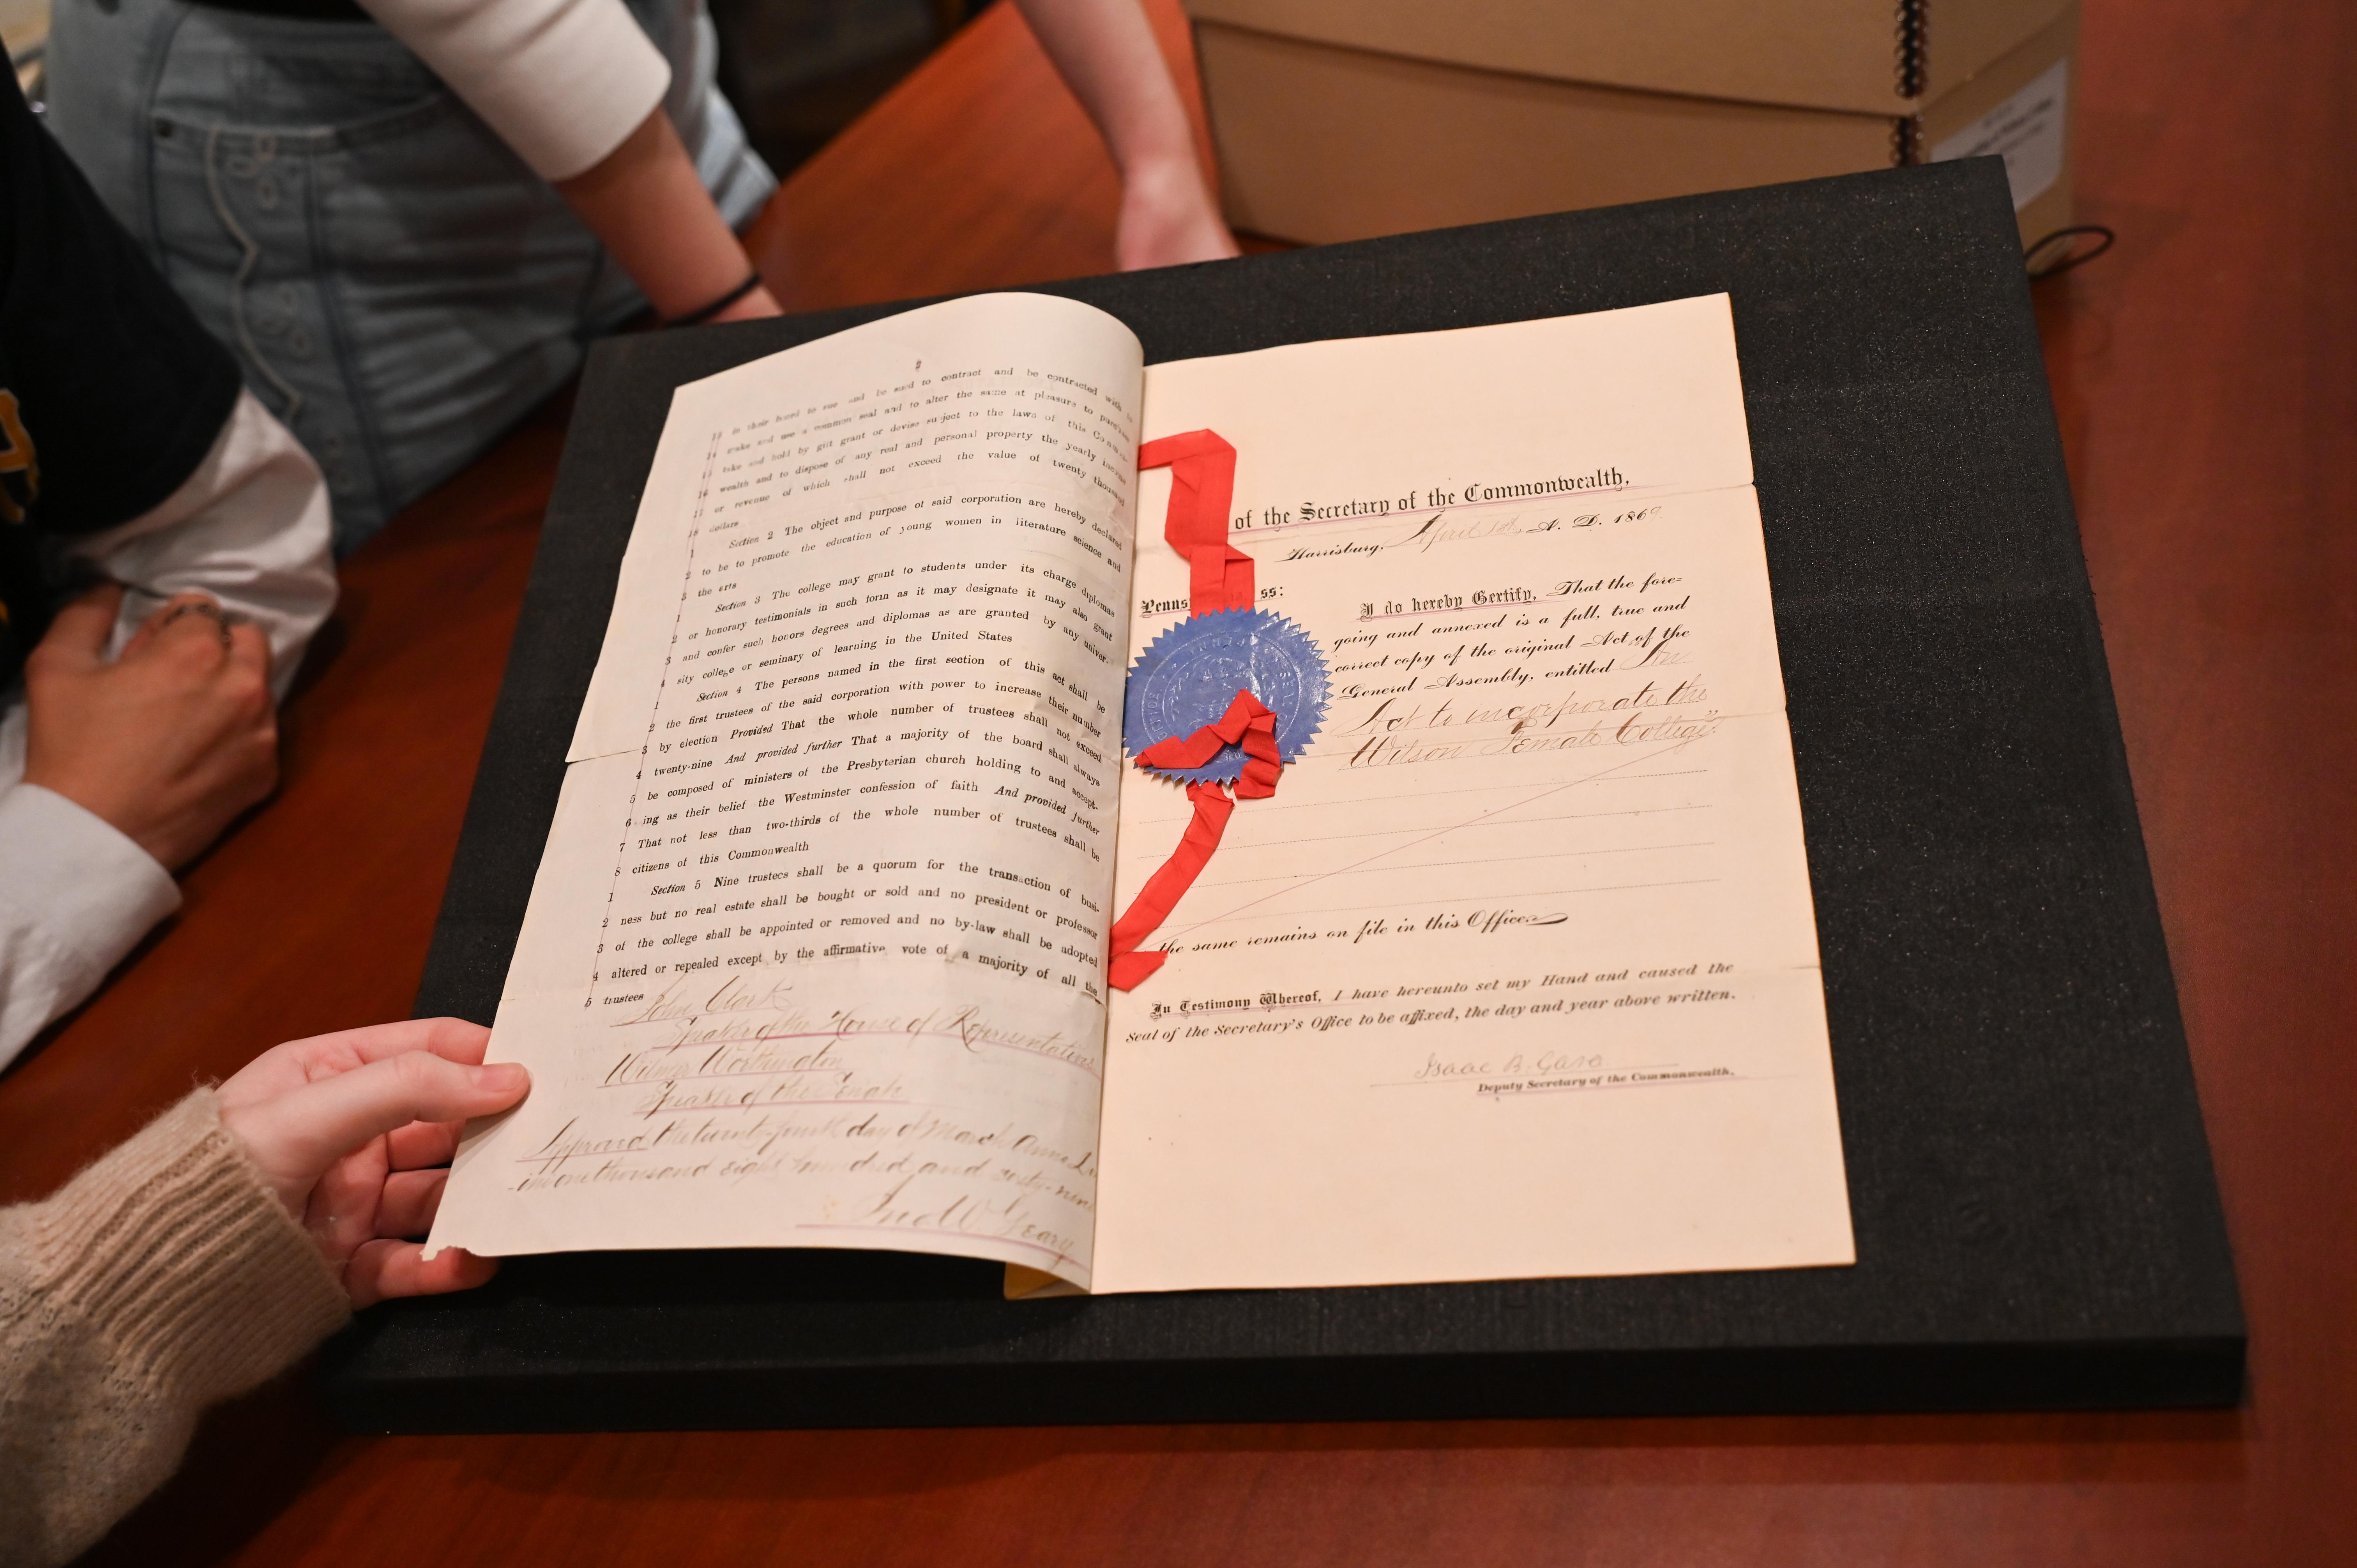 2
13 in their hand to sue and be sued to contract and be contracted with to
14 make and use a common seal and to alter the same at pleasure to purchase
15 take and hold by gift grant or devise subject to the laws of this Common-
16 wealth and to dispose of any real and personal property the yearly income
17 or revenue of which shall not exceed the value of twenty thousand
18 dollars
1 Section 2 The object and purpose of said corporation are hereby declared
2 to be to promote the education of young women in literature science and
3 the arts
1 Section 3 The college may grant to students under its charge diplomas
2 or honorary testimonials in such form as it may designate it may also grant
3 and confer such honors degrees and diplomas as are granted by any univer-
4 sity college or seminary of learning in the United States
1 Section 4 The persons named in the first section of this act shall be
2 the first trustees of the said corporation with power to increase their number
3 by election Provided That the whole number of trustees shall not exceed
4 twenty-nine And provided further That a majority of the board shall always
5 be composed of ministers of the Presbyterian church holding to and accept-
6 ing as their belief the Westminster confession of faith And provided further
7 That not less than two-thirds of the whole number of trustees shall be
8 citizens of this Commonwealth
1 Section 5 Nine trustees shall be a quorum for the transaction of busi-
2 ness but no real estate shall be bought or sold and no president or professor
3 of the college shall be appointed or removed and no by-law shall be adopted
4 altered or repealed except by the affirmative vote of a majority of all the
5 trustees
John Clark
Speaker of the House of Representatives
Wilmer Worthington
Speaker of the Senate
Approved the twenty-fourth day of March Anno
one thousand eight hundred and sixty-nine
Jno W Geary
of the Secretary of the Commonwealth,
Harrisburg, April 1st, A. D. 1869.
Penns ss:
I do hereby Certify, That the fore-
going and annexed is a full, true and
correct copy of the original Act of the
General Assembly, entitled "An
Act to incorporate the
Wilson Female College"
the same remains on file in this Office.
In Testimony Whereof, I have hereunto set my Hand and caused the
Seal of the Secretary's Office to be affixed, the day and year above written.
Isaac B. Gara
Deputy Secretary of the Commonwealth.